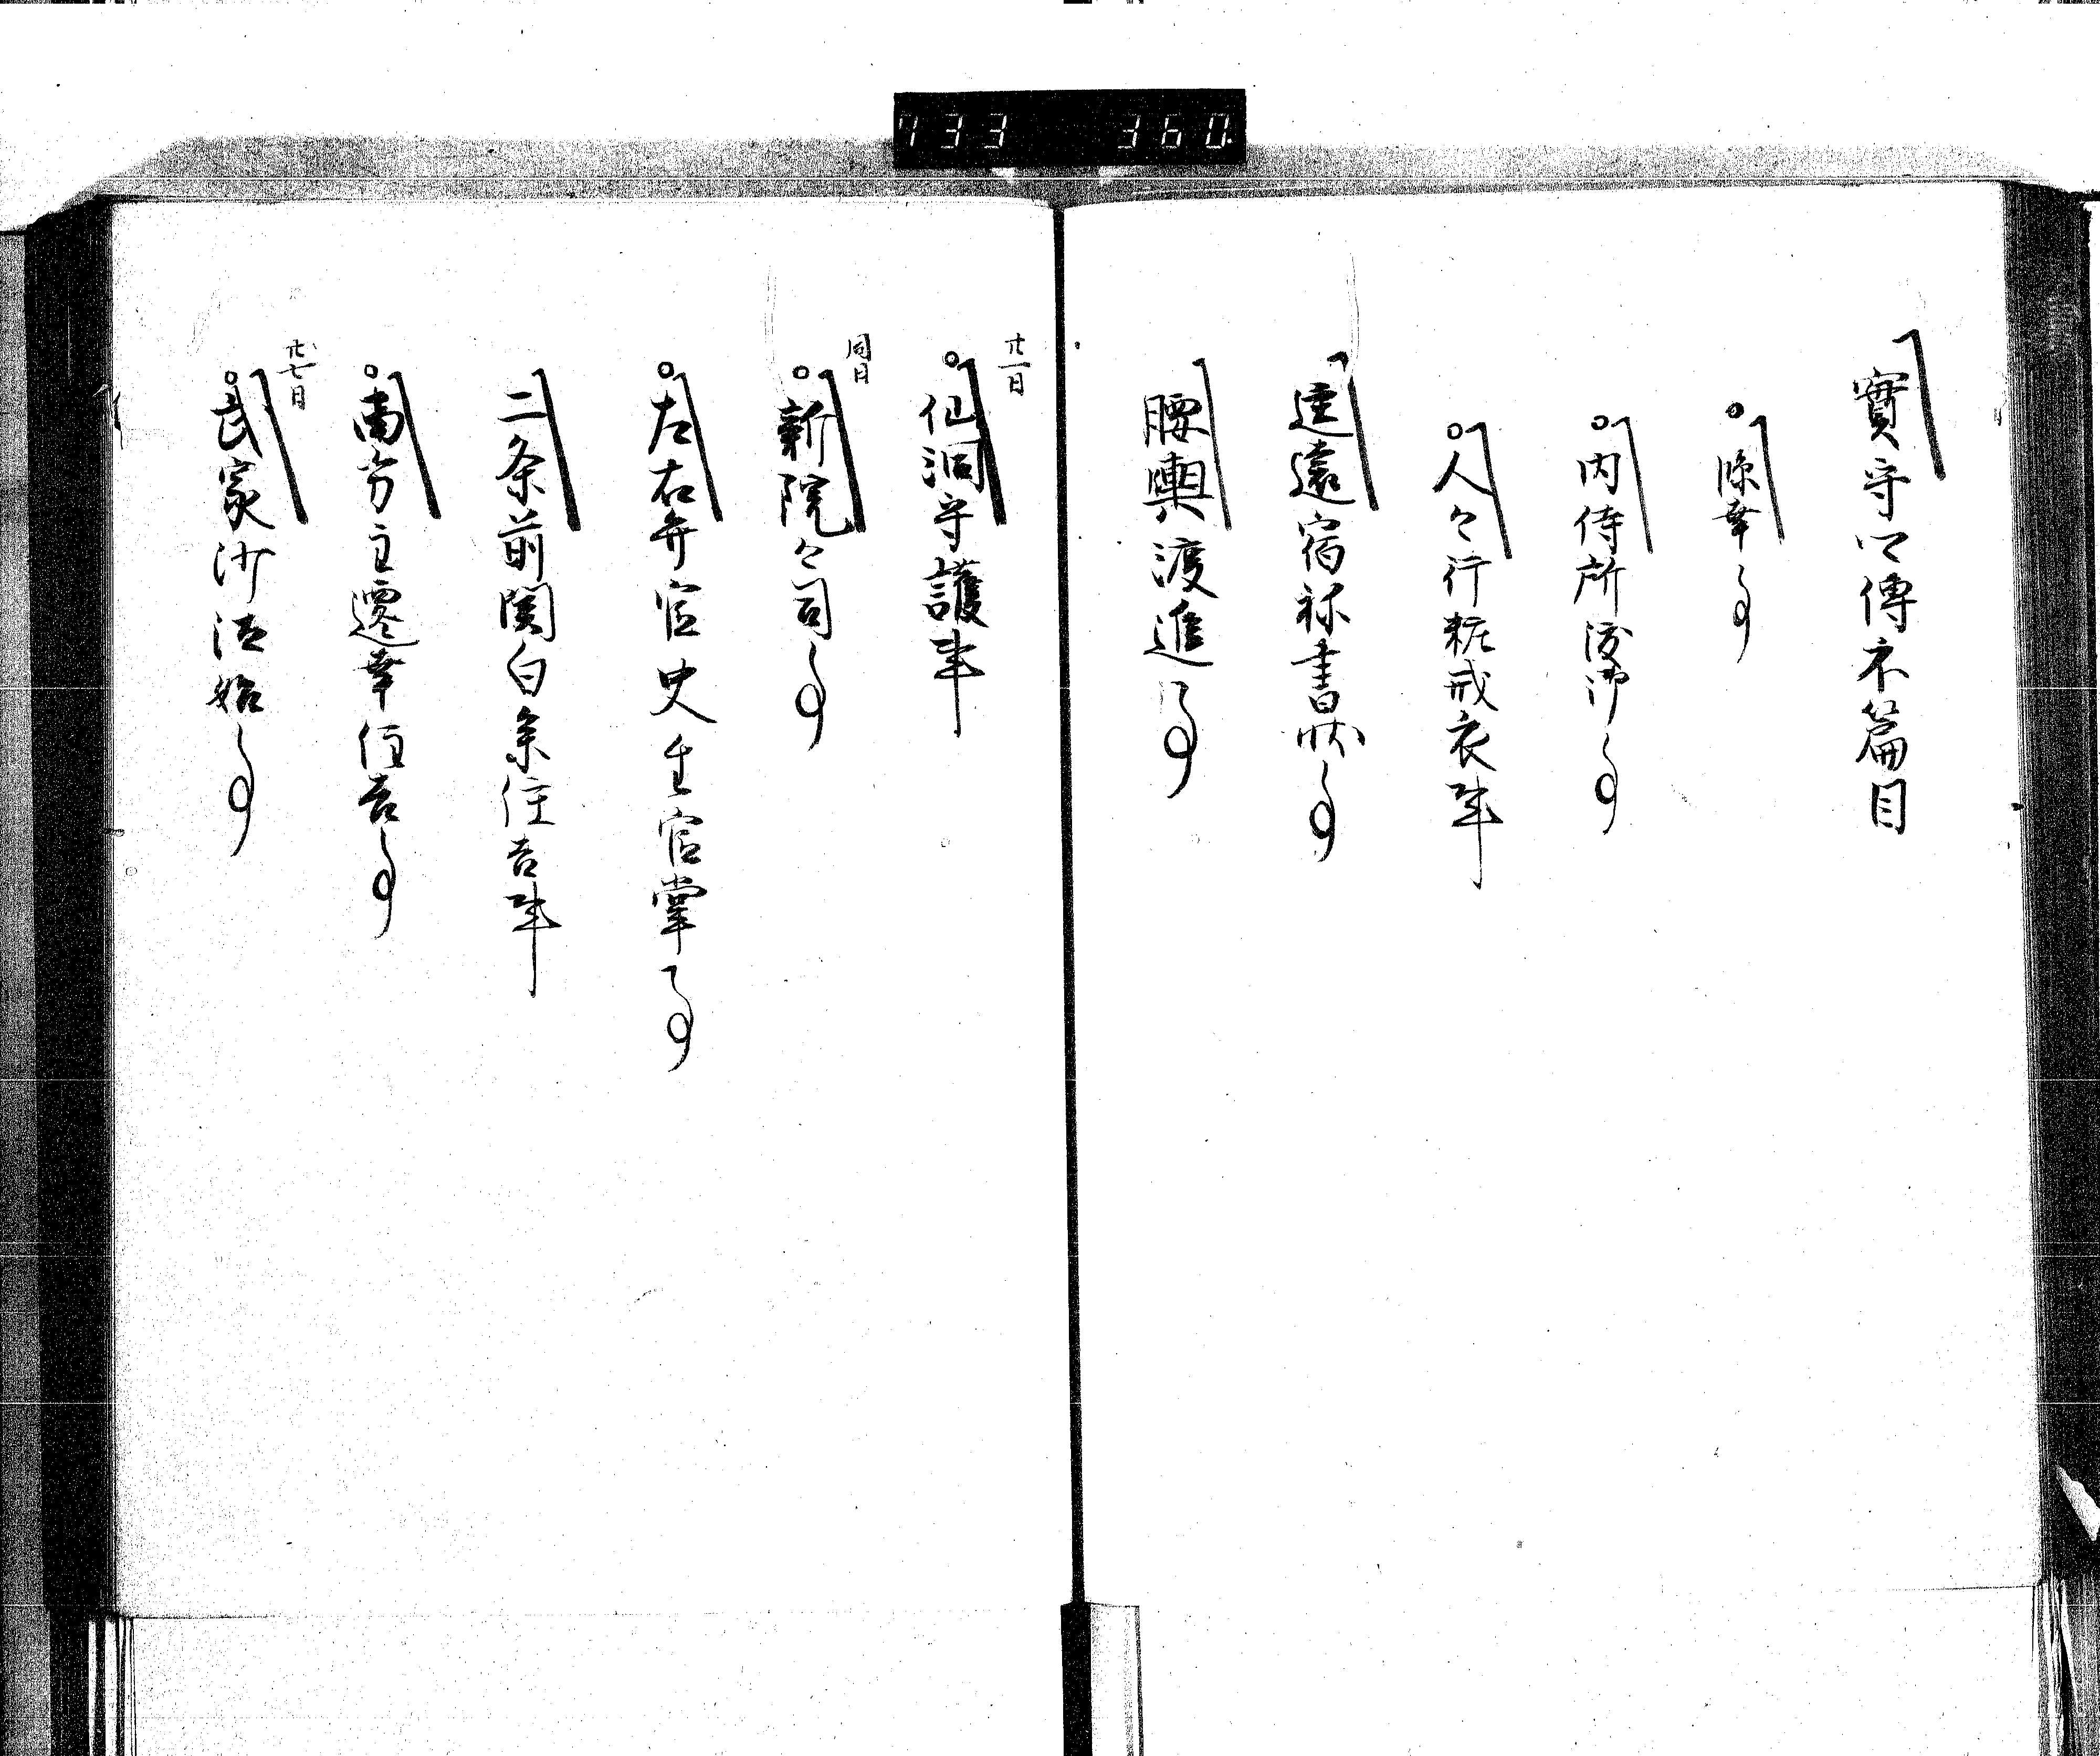 433 360
實守口傳不篇目
臨幸事
内侍所渡御事
人々行粧戎衣事
匡遠宿祢書状事
腰輿渡進事
廿一日
仙洞守護事
同日
新院々司事
左右弁官史生官掌事
二条前関白参住吉事
南方主遷幸住吉事
廿七日
武家沙汰始事